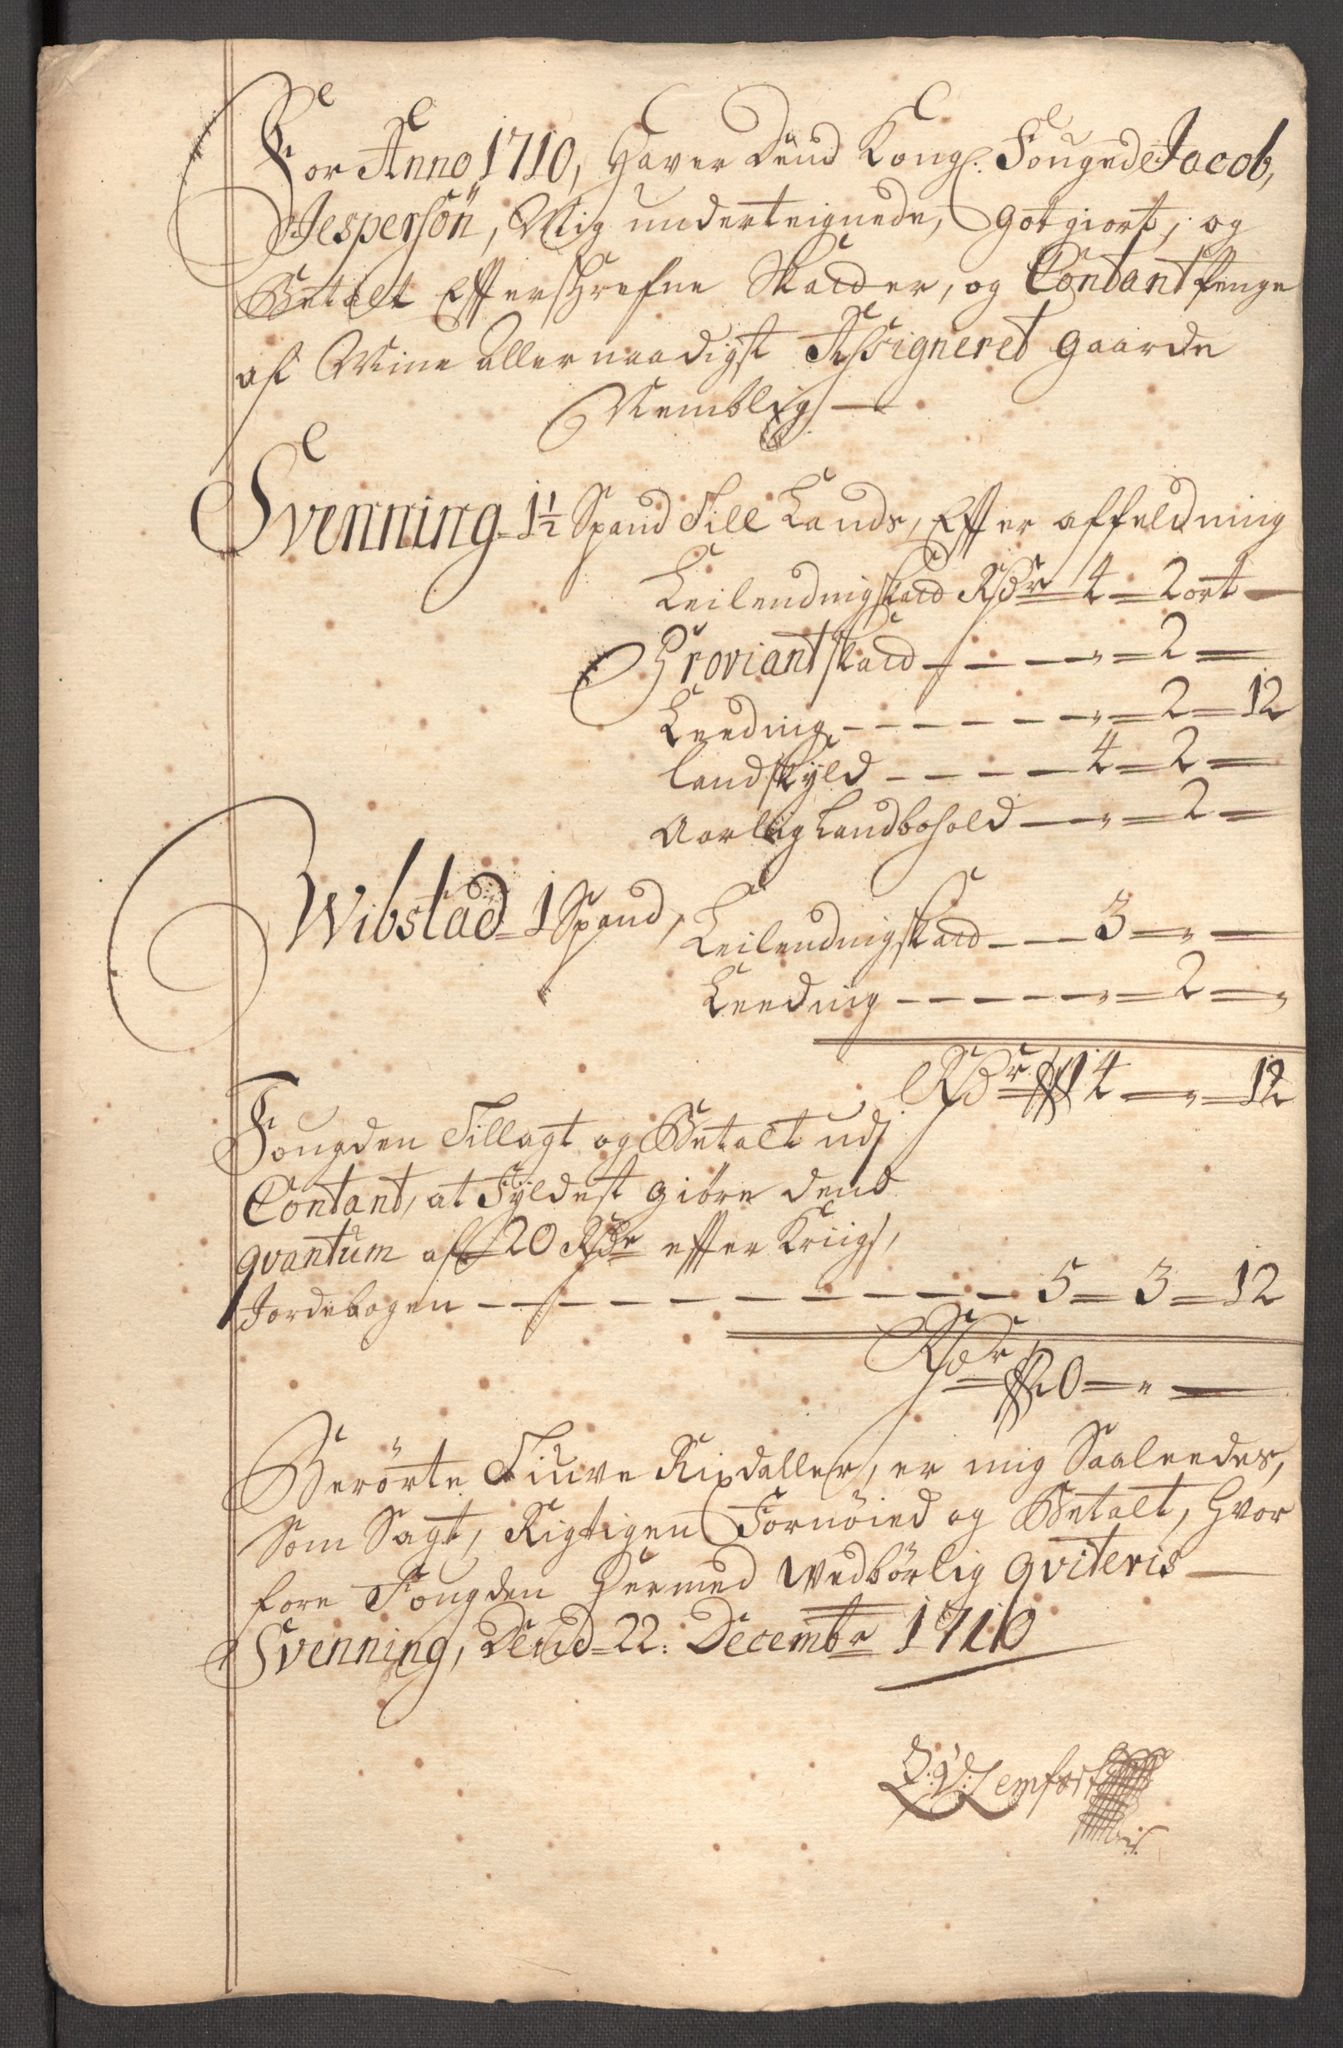 For Anno 1710, Haver Dend Kongl. Fouged Jacob,
Jespersön, Mig underteignede, got giort, og
Betalt Efterschrefne Skatder, og Contant penge
af Mine aller naadigst Assigneret gaarde
Nemblig —
Svenning - 1½ Spand Till Lands, Efter affeldning
Leilendingskatd Rdr 4 = 2 ort —
Proviantskatd — — — „ = 2 —
Leeding — — — — „ = 2 = 12
landskyld — — — — 4 = 2 —
Aarlig Landbohold — — „ = 2 —
Wibstad - 1 Spand, Leilendingskatd — — 3 = „ —
Leeding — — — — „ = 2 = „
Rdr 14 — „ = 12
Fougden Tillagt og Betalt udj
Contant, at Fyldest giöre dend
qvantum af 20 Rdr efter Kriigs,
Jordebogen — — — — — — — 5 = 3 = 12
Rdr 20 = „ —
Berörte Tiuve Rixdaller, er mig Saaleedes,
Som Sagt, Rigtigen Fornöied og Betalt, hvor
fore Fougden hermed Wedbörlig qviteris —
Svenning, Dend 22: Decembr 1710